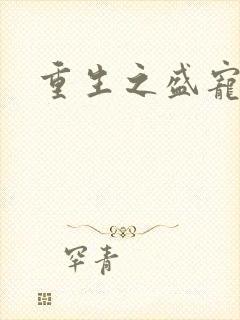 重生之盛寵
罕青